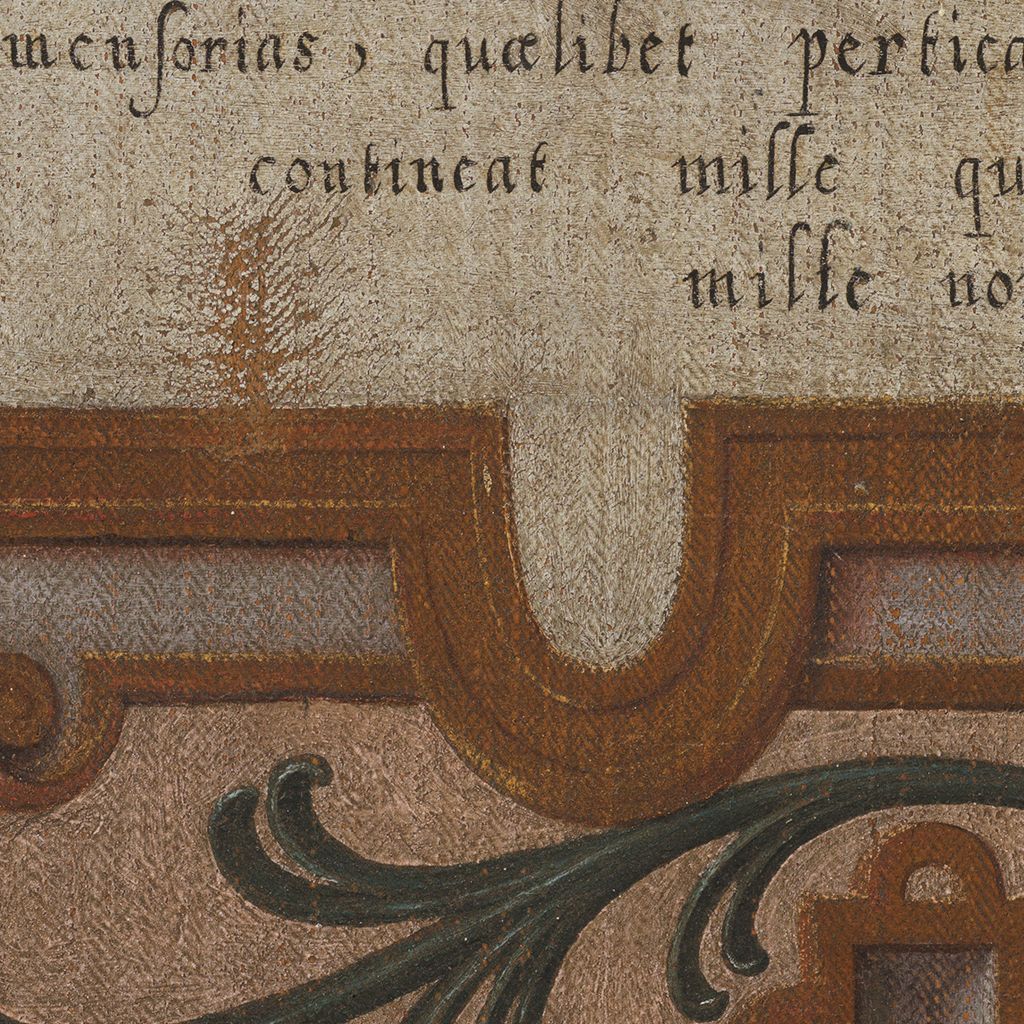 mensorias, quælibet pertica
contineat mille qu
mille no